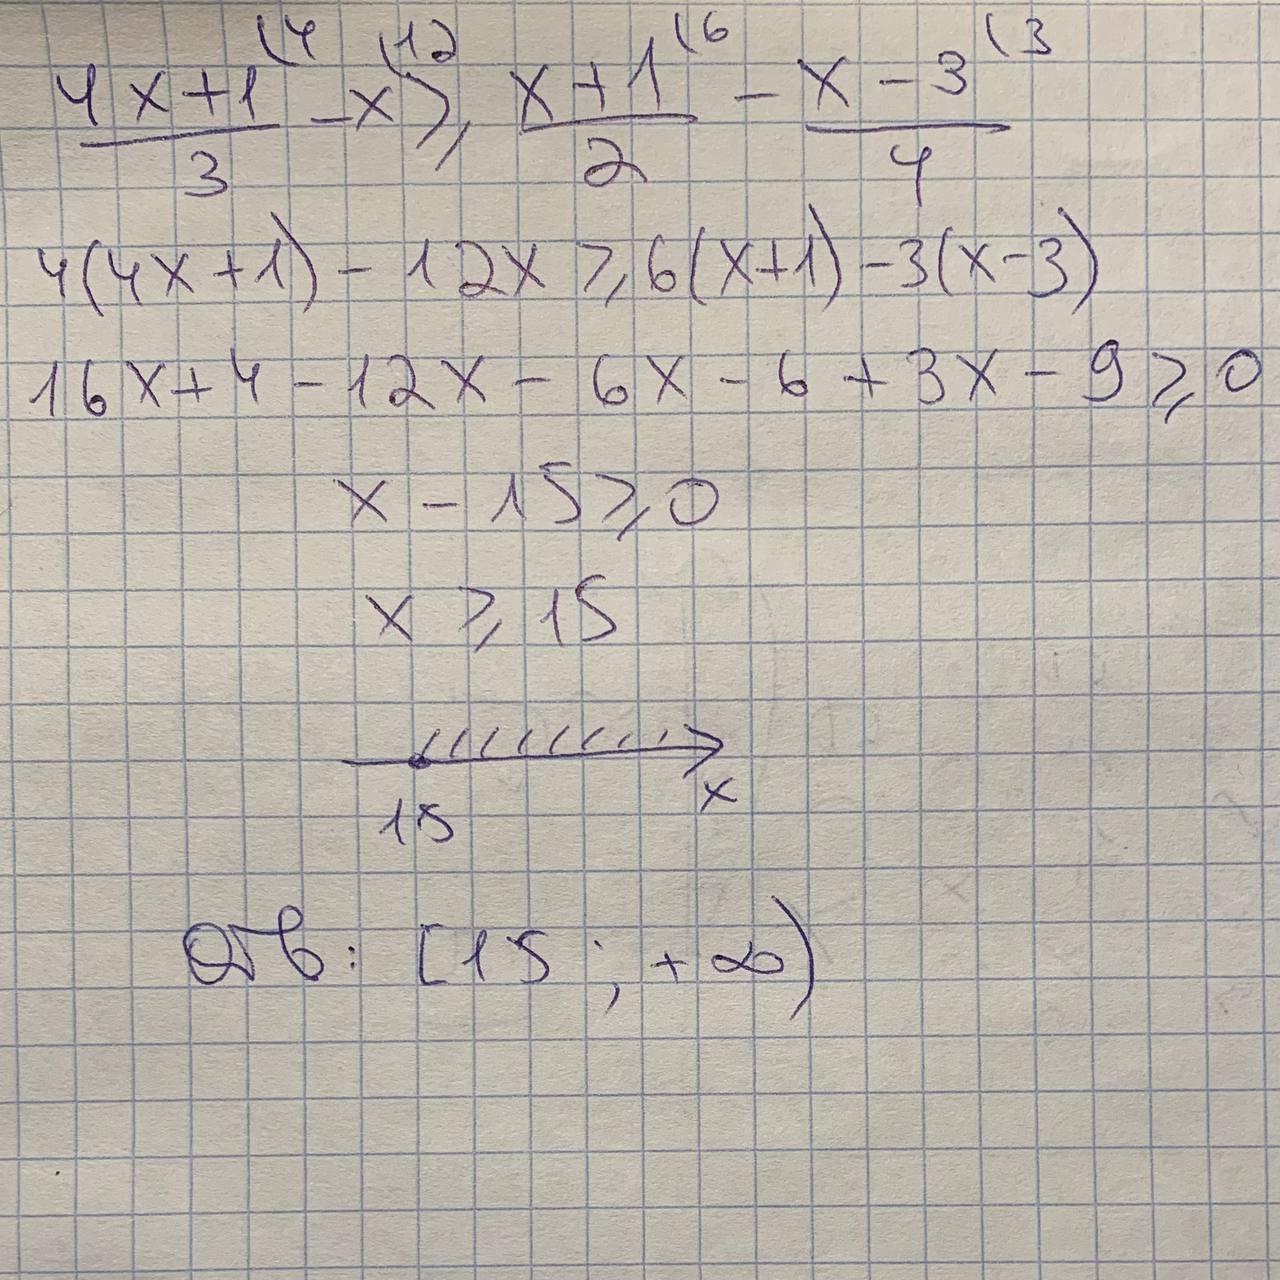 (4x+1)/3 (4 - x (12 ≥ (x+1)/2 (6 - (x-3)/4 (3
4(4x+1) - 12x ≥ 6(x+1) - 3(x-3)
16x + 4 - 12x - 6x - 6 + 3x - 9 ≥ 0
x - 15 ≥ 0
x ≥ 15
15 x
Отв: [15 ; +∞)